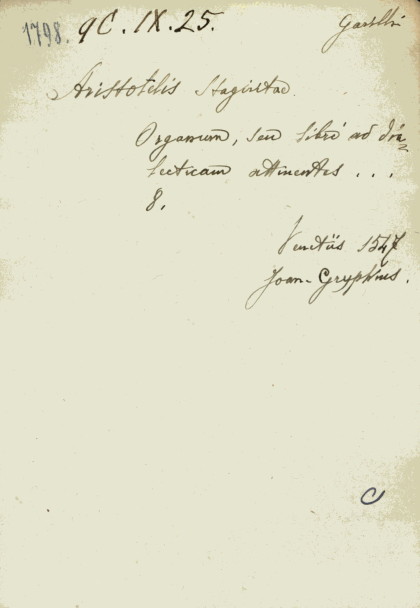 1798. 9C. IX. 25.
Aristotelis Stagiritae
Organum, seu libri ad dia-
lecticam attinentes . . .
8.
Venetiis 1547
Joan. Gryphius.